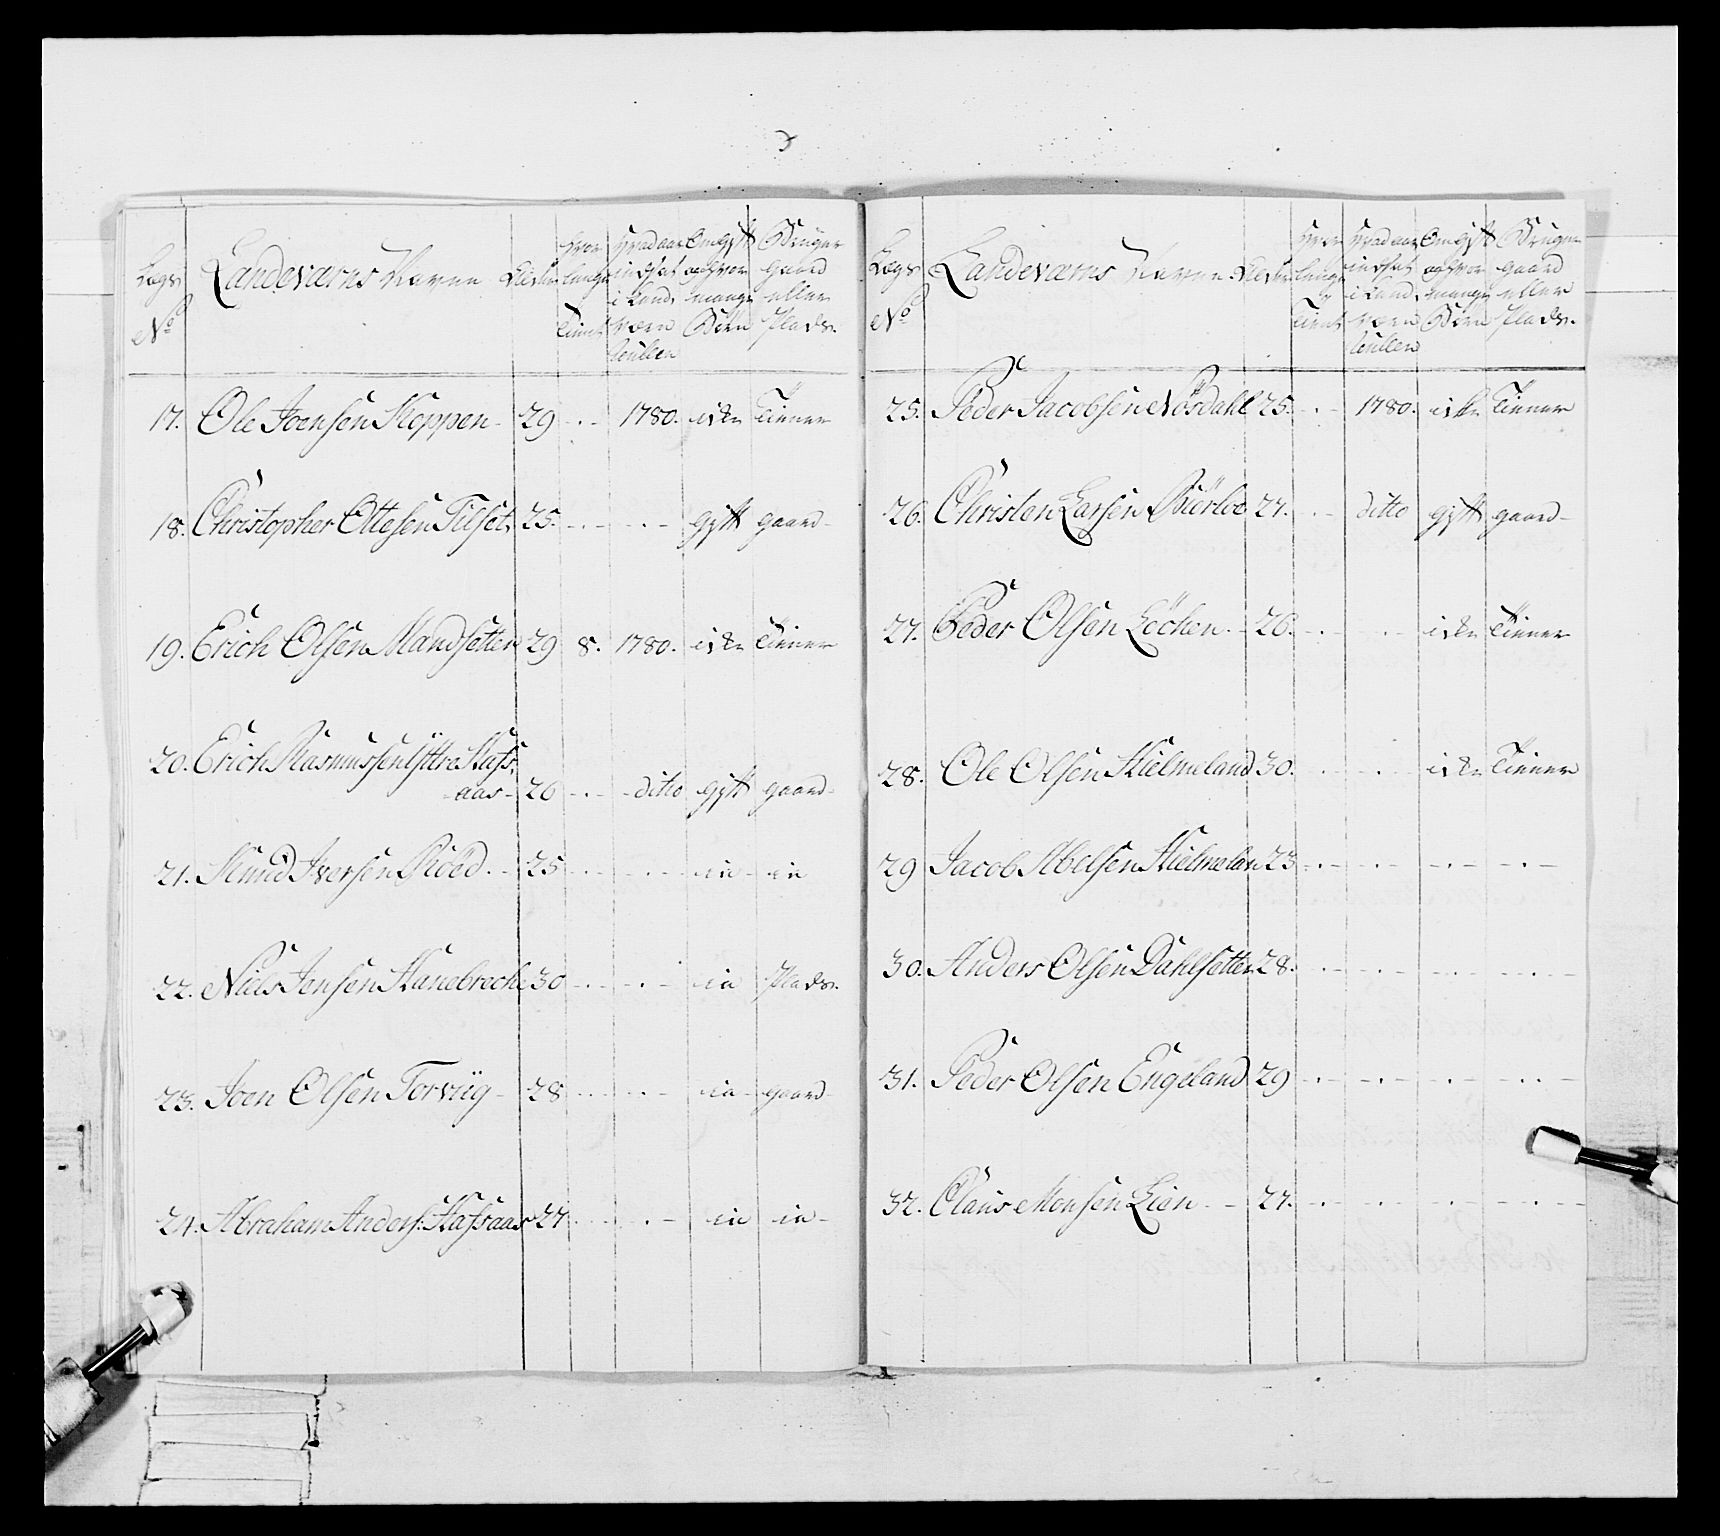 Lægs No Landeværns Navne Alder Hvor længe Tient Hvad aar indsat i Land Værn Rullen Om gift og hvor mange Børn Bruger gaard eller Plads.
17. Ole Joensen Koppen - 29 - . - 1780. icke Tiener
18. Christopher Ottesen Tilset, 25. - . - - . - gift gaard -
19. Erich Olsen Mandsetter 29 8. 1780. icke Tiener
20. Erich Rasmussen Yttre Hafs-
aas - 26 - . - ditto gift gaard -
21. Knud Iversen Röed. - 25 - . - - . - in - in
22. Niels Jensen Hanebreche 30 - . - - . - in Plads.
23. Joen Olsen Torviig - 28 - . - - . - in - gaard -
24. Abraham Anders: Hafsaas 27 - . - - . - in in -
Lægs No Landeværns Navne Alder Hvor længe Tient Hvad aar indsat i Land Værn Rullen Om gift og hvor mange Børn Bruger gaard eller Plads.
25. Peder Jacobsen Nösdahl 25. - . - 1780. icke Tiener
26. Christen Larsen Biörloe 27. - . - ditto gift gaard -
27. Peder Olsen Löchen. - 26. - . - - . - icke Tiener
28. Ole Olsen Hielmeland 30. - . - - . - icke Tiener
29 Jacob Abelsen Hielmelan 23 - . - - . - - . - - . -
30. Anders Olsen Dahlsetter 28. - . - - . - - . - - . -
31. Peder Olsen Engeland 29 - . - - . - - . - - . -
32. Claus Monsen Lien - - 27. - . - - . - - . - - . -